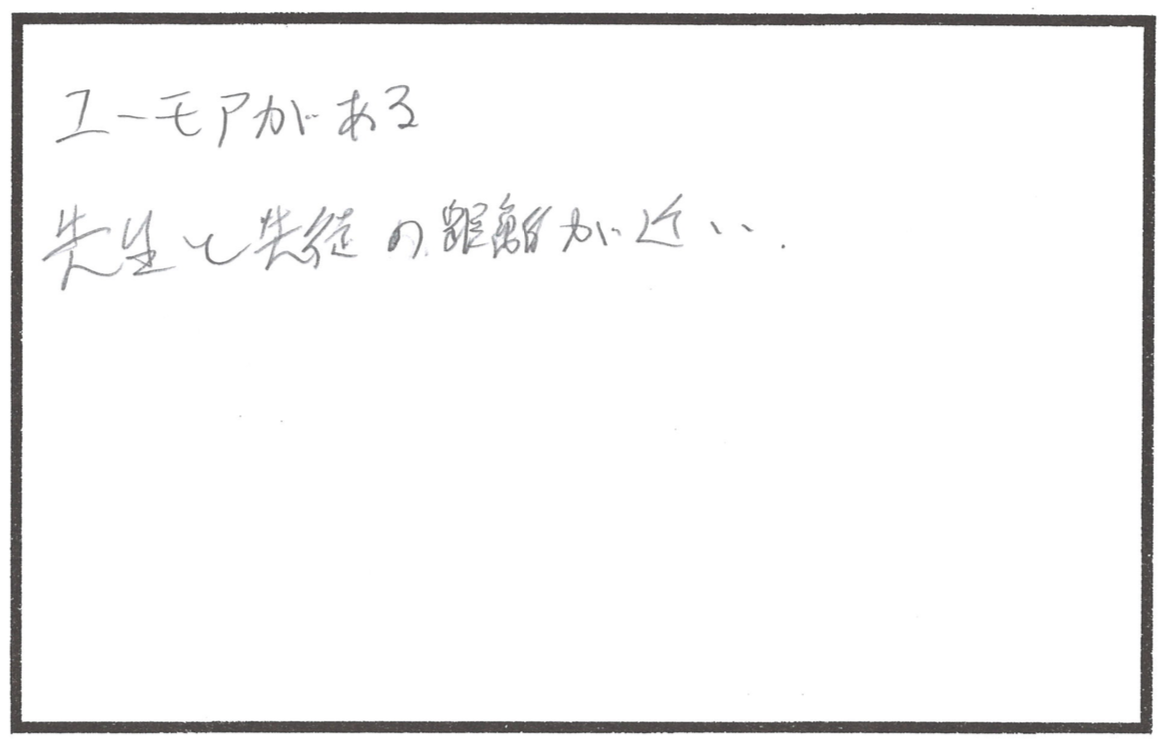 ユーモアがある
先生と先徒の距離が近い.